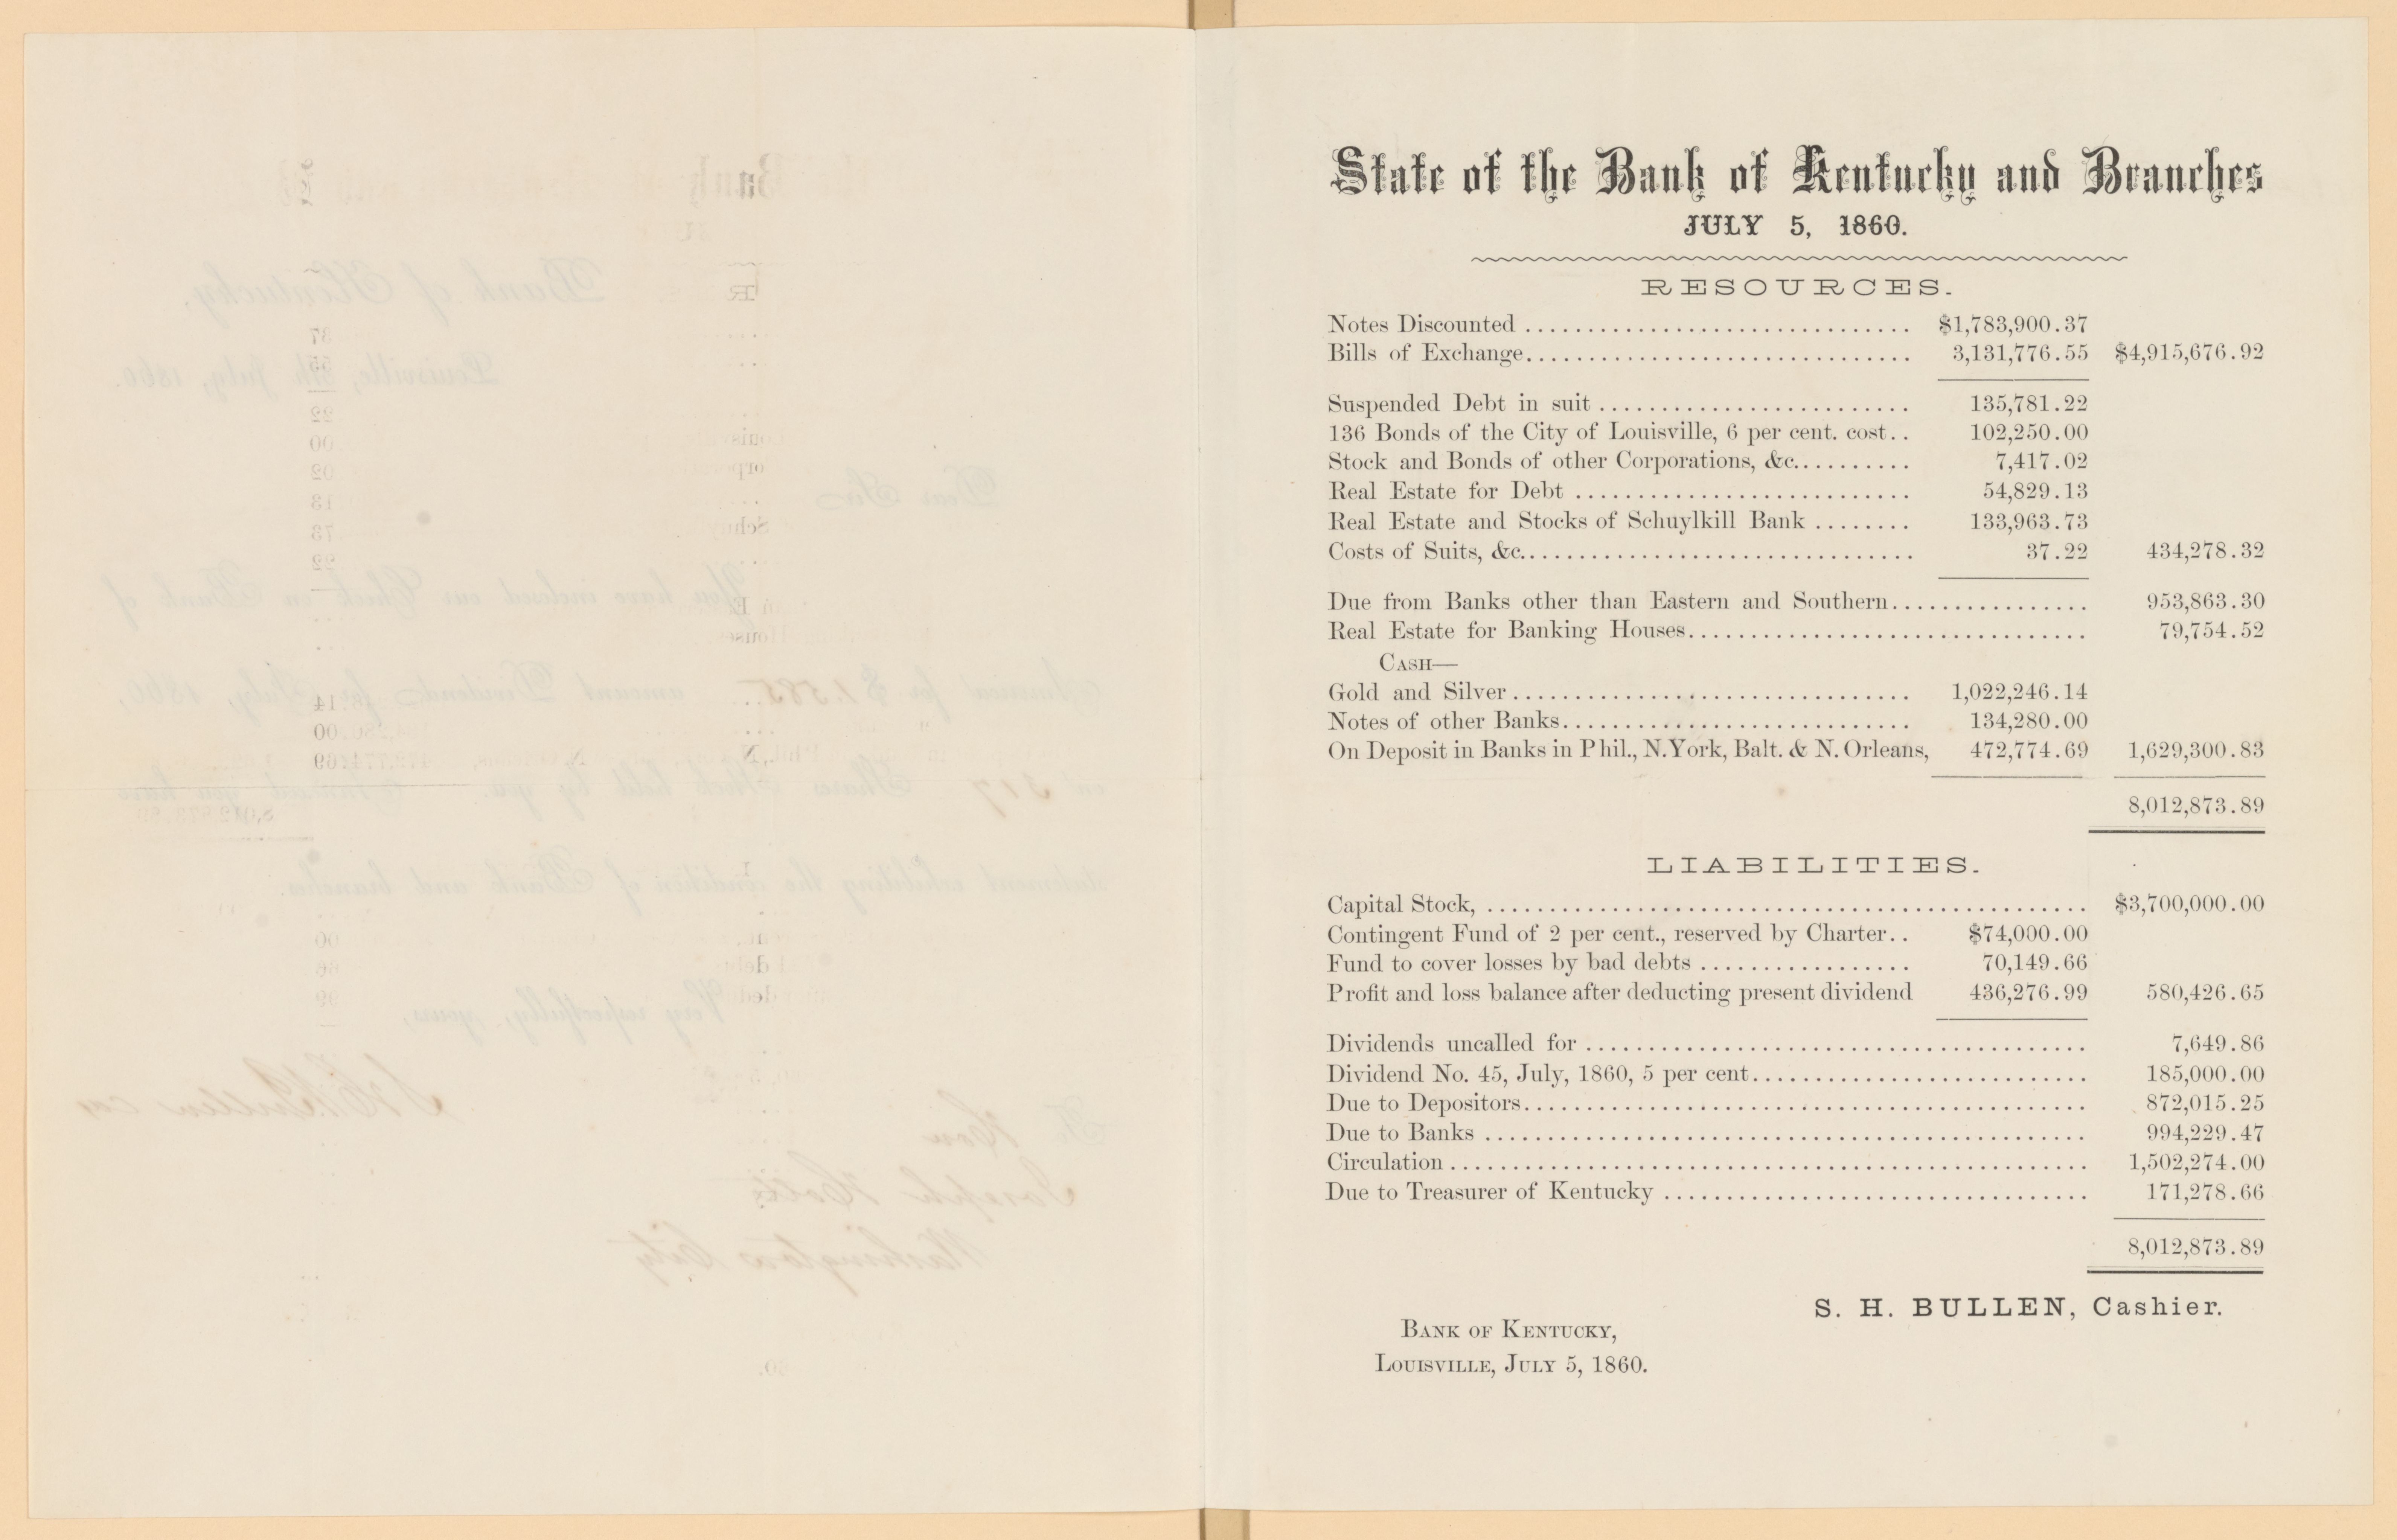 State of the Bank of Kentucky and Branches
JULY 5, 1860.
RESOURCES.
Notes Discounted .............................. $1,783,900.37
Bills of Exchange.............................. 3,131,776.55 $4,915,676.92
Suspended Debt in suit ......................... 135,781.22
136 Bonds of the City of Louisville, 6 per cent. cost.. 102,250.00
Stock and Bonds of other Corporations, &c.......... 7,417.02
Real Estate for Debt ........................... 54,829.13
Real Estate and Stocks of Schuylkill Bank ........ 133,963.73
Costs of Suits, &c............................... 37.22 434,278.32
Due from Banks other than Eastern and Southern................ 953,863.30
Real Estate for Banking Houses................................ 79,754.52
CASH—
Gold and Silver................................ 1,022,246.14
Notes of other Banks............................ 134,280.00
On Deposit in Banks in Phil., N. York, Balt. & N. Orleans, 472,774.69 1,629,300.83
8,012,873.89
LIABILITIES.
Capital Stock, ................................................ $3,700,000.00
Contingent Fund of 2 per cent., reserved by Charter.. $74,000.00
Fund to cover losses by bad debts ................. 70,149.66
Profit and loss balance after deducting present dividend 436,276.99 580,426.65
Dividends uncalled for ........................................ 7,649.86
Dividend No. 45, July, 1860, 5 per cent........................... 185,000.00
Due to Depositors............................................. 872,015.25
Due to Banks ................................................ 994,229.47
Circulation................................................... 1,502,274.00
Due to Treasurer of Kentucky .................................. 171,278.66
8,012,873.89
S. H. BULLEN, Cashier.
BANK OF KENTUCKY,
LOUISVILLE, JULY 5, 1860.